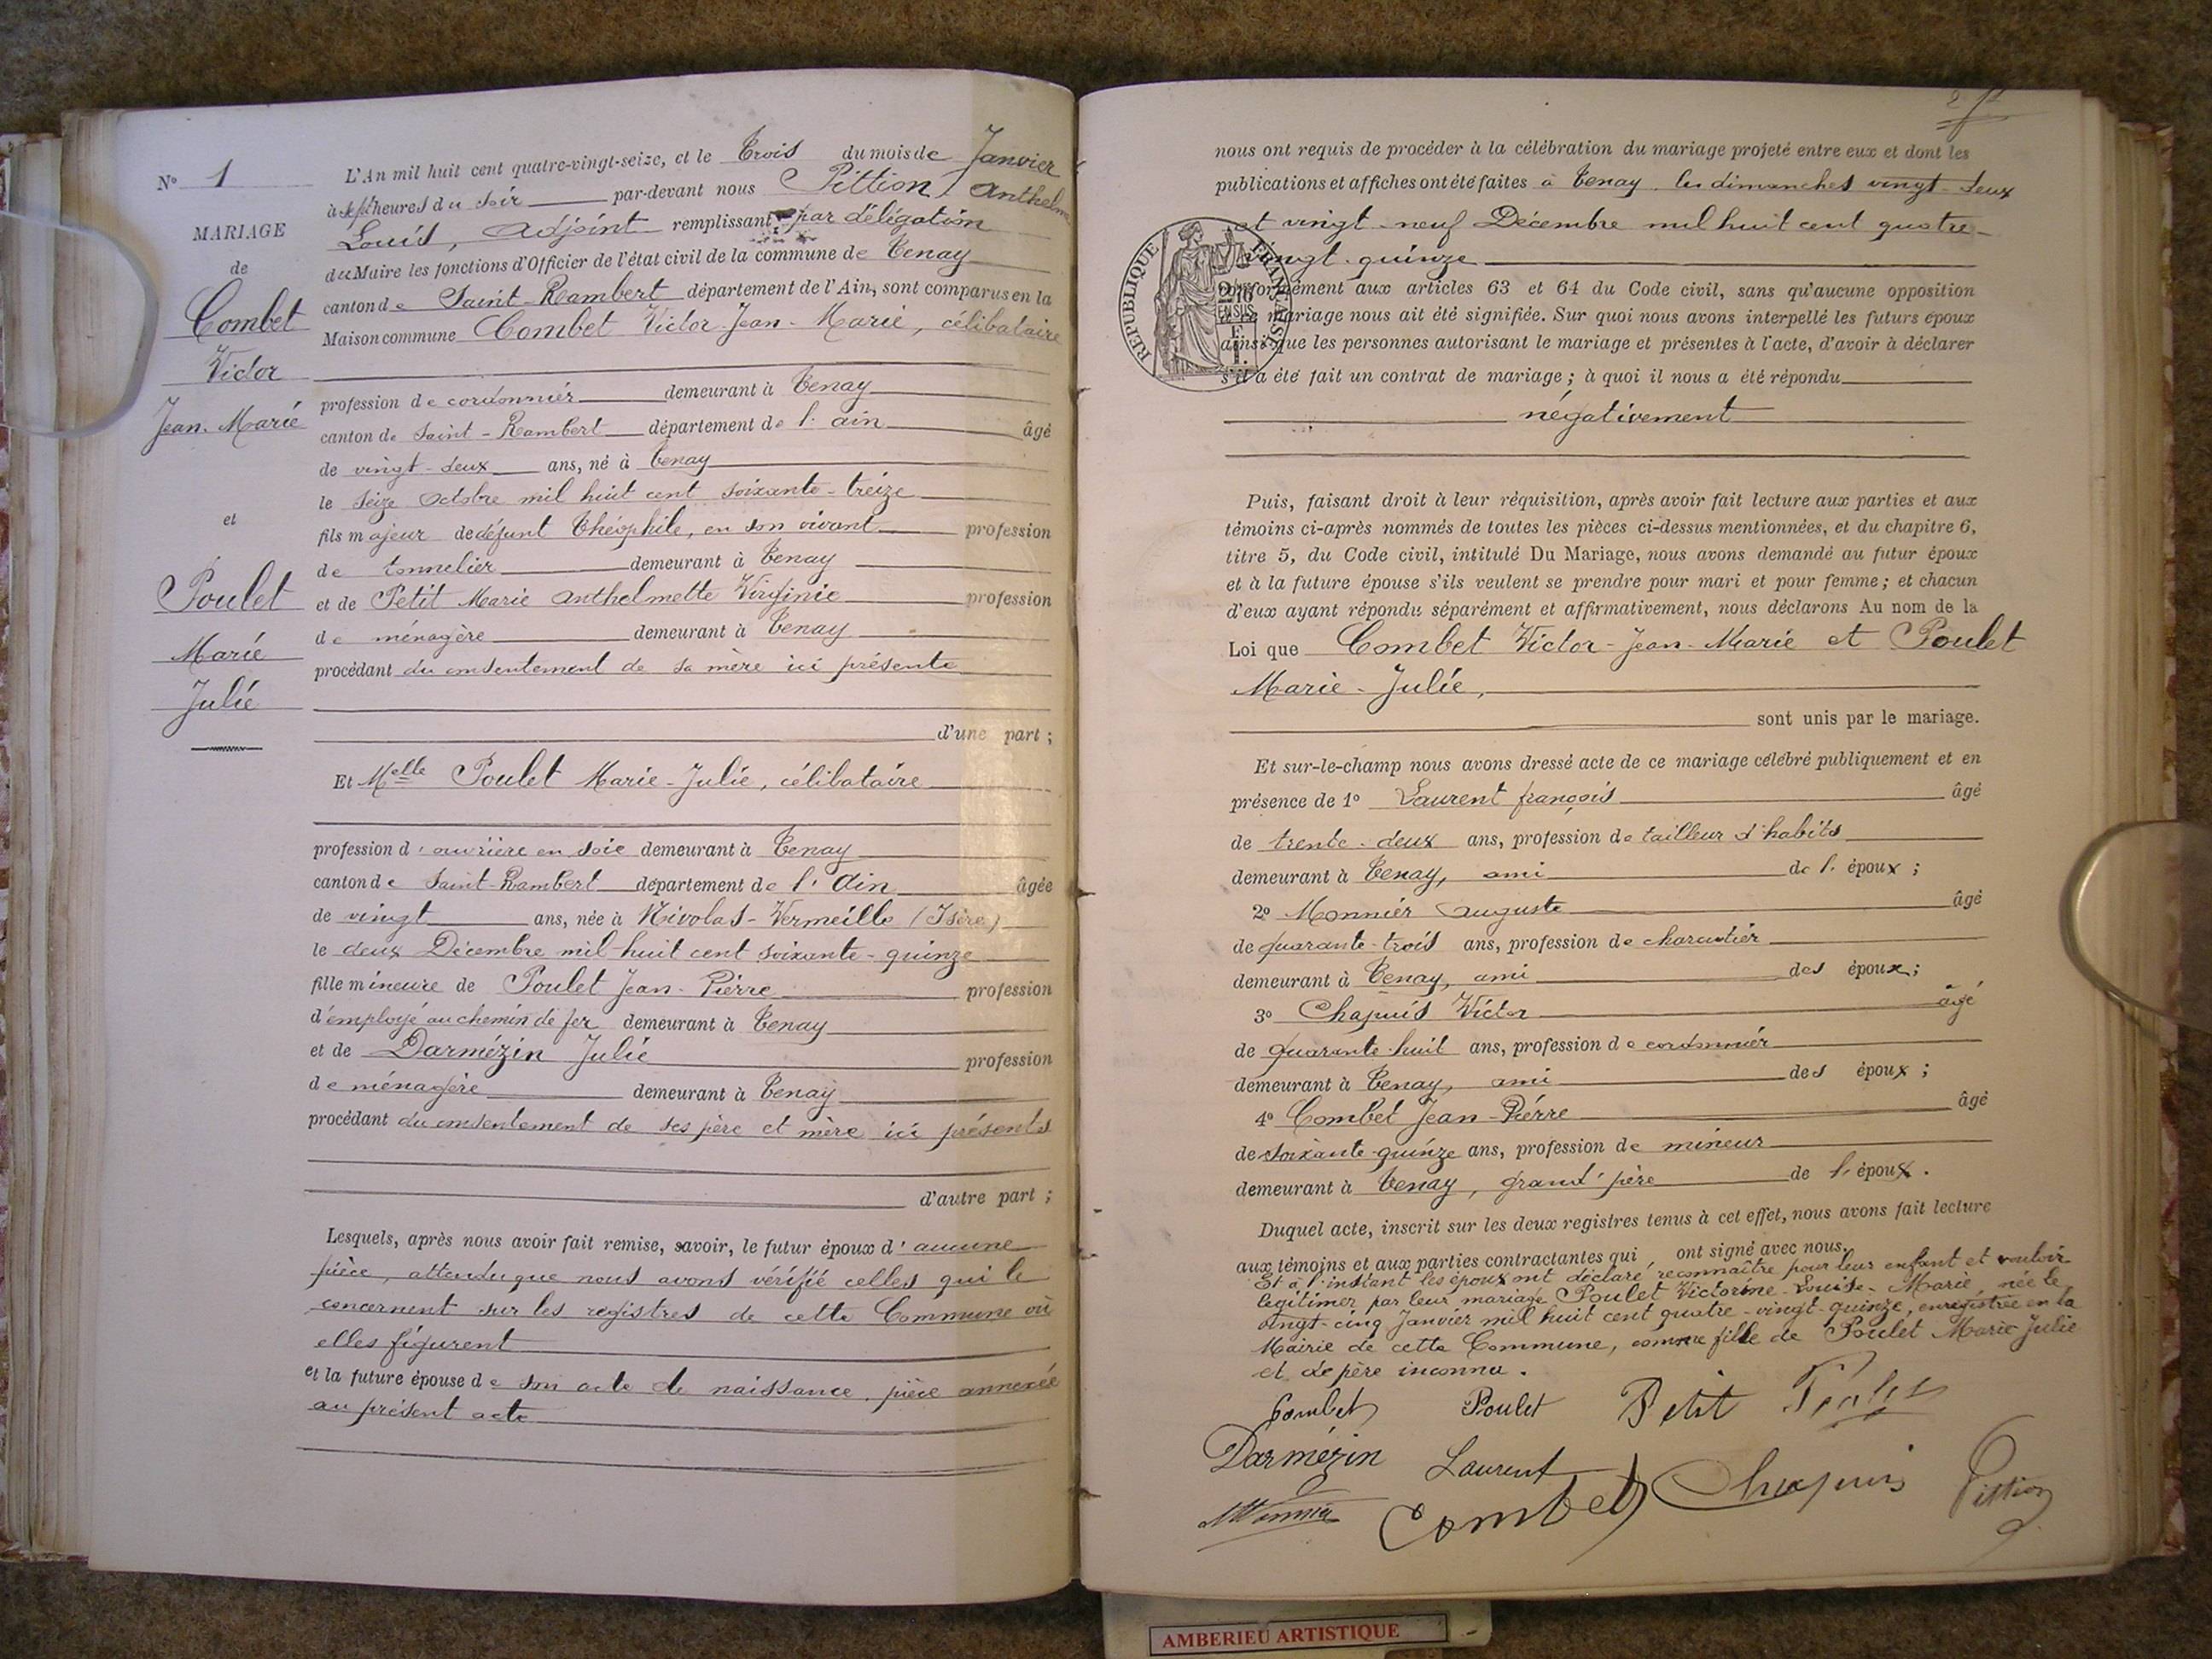 N° 1
MARIAGE
de
Combet
Victor
Jean-Marie
et
Poulet
Marie
Julie
L'An mil huit cent quatre-vingt-seize, et le Trois du mois de Janvier
à sept heures du soir par-devant nous Pittion Anthelme
Louis, Adjoint remplissant par délégation
du Maire les fonctions d'Officier de l'état civil de la commune de Tenay
canton de Saint-Rambert département de l'Ain, sont comparus en la
Maison commune Combet Victor-Jean-Marie, célibataire
profession de cordonnier demeurant à Tenay
canton de Saint-Rambert département de l'ain âgé
de vingt-deux ans, né à Tenay
le seize octobre mil huit cent soixante-treize
fils majeur de défunt Théophile, en son vivant profession
de tonnelier demeurant à Tenay
et de Petit Marie Anthelmette Virginie profession
de ménagère demeurant à Tenay
procédant du consentement de sa mère ici présente
d'une part ;
Et Melle Poulet Marie-Julie, célibataire
profession d'ouvrière en soie demeurant à Tenay
canton de Saint-Rambert département de l'Ain âgée
de vingt ans, née à Nivolas-Vermeille (Isère)
le deux Décembre mil huit cent soixante-quinze
fille mineure de Poulet Jean-Pierre profession
d'employé au chemin de fer demeurant à Tenay
et de Darmézin Julie profession
de ménagère demeurant à Tenay
procédant du consentement de ses père et mère ici présents
d'autre part ;
Lesquels, après nous avoir fait remise, savoir, le futur époux d'aucune
pièce, attendu que nous avons vérifié celles qui le
concernent sur les registres de cette Commune où
elles figurent
et la future épouse de son acte de naissance, pièce annexée
au présent acte
nous ont requis de procéder à la célébration du mariage projeté entre eux et dont les
publications et affiches ont été faites à Tenay les dimanches vingt-deux
et vingt-neuf Décembre mil huit cent quatre-
vingt-quinze
conformément aux articles 63 et 64 du Code civil, sans qu'aucune opposition
mariage nous ait été signifiée. Sur quoi nous avons interpellé les futurs époux
ainsi que les personnes autorisant le mariage et présentes à l'acte, d'avoir à déclarer
s'il a été fait un contrat de mariage ; à quoi il nous a été répondu
négativement
RÉPUBLIQUE FRANÇAISE
Puis, faisant droit à leur réquisition, après avoir fait lecture aux parties et aux
témoins ci-après nommés de toutes les pièces ci-dessus mentionnées, et du chapitre 6,
titre 5, du Code civil, intitulé Du Mariage, nous avons demandé au futur époux
et à la future épouse s'ils veulent se prendre pour mari et pour femme ; et chacun
d'eux ayant répondu séparément et affirmativement, nous déclarons Au nom de la
Loi que Combet Victor-Jean-Marie et Poulet
Marie-Julie,
sont unis par le mariage.
Et sur-le-champ nous avons dressé acte de ce mariage célébré publiquement et en
présence de 1° Laurent françois âgé
de trente-deux ans, profession de tailleur d'habits
demeurant à Tenay, ami de l'époux ;
2° Monnier Auguste âgé
de quarante-trois ans, profession de charcutier
demeurant à Tenay, ami des époux ;
3° Chapuis Victor âgé
de quarante-huit ans, profession de cordonnier
demeurant à Tenay, ami des époux ;
4° Combet Jean-Pierre âgé
de soixante-quinze ans, profession de mineur
demeurant à Tenay, grand'père de l'époux.
Duquel acte, inscrit sur les deux registres tenus à cet effet, nous avons fait lecture
aux témoins et aux parties contractantes qui ont signé avec nous.
Et à l'instant les époux ont déclaré reconnaître pour leur enfant et vouloir
légitimer par leur mariage Poulet Victorine-Louise-Marie, née le
vingt-cinq Janvier mil huit cent quatre-vingt-quinze, enregistrée en la
Mairie de cette Commune, comme fille de Poulet Marie Julie
et de père inconnu.
Combet Poulet Petit
Darmézin Laurent
Monnier Combet Chapuis Pittion
AMBERIEU ARTISTIQUE